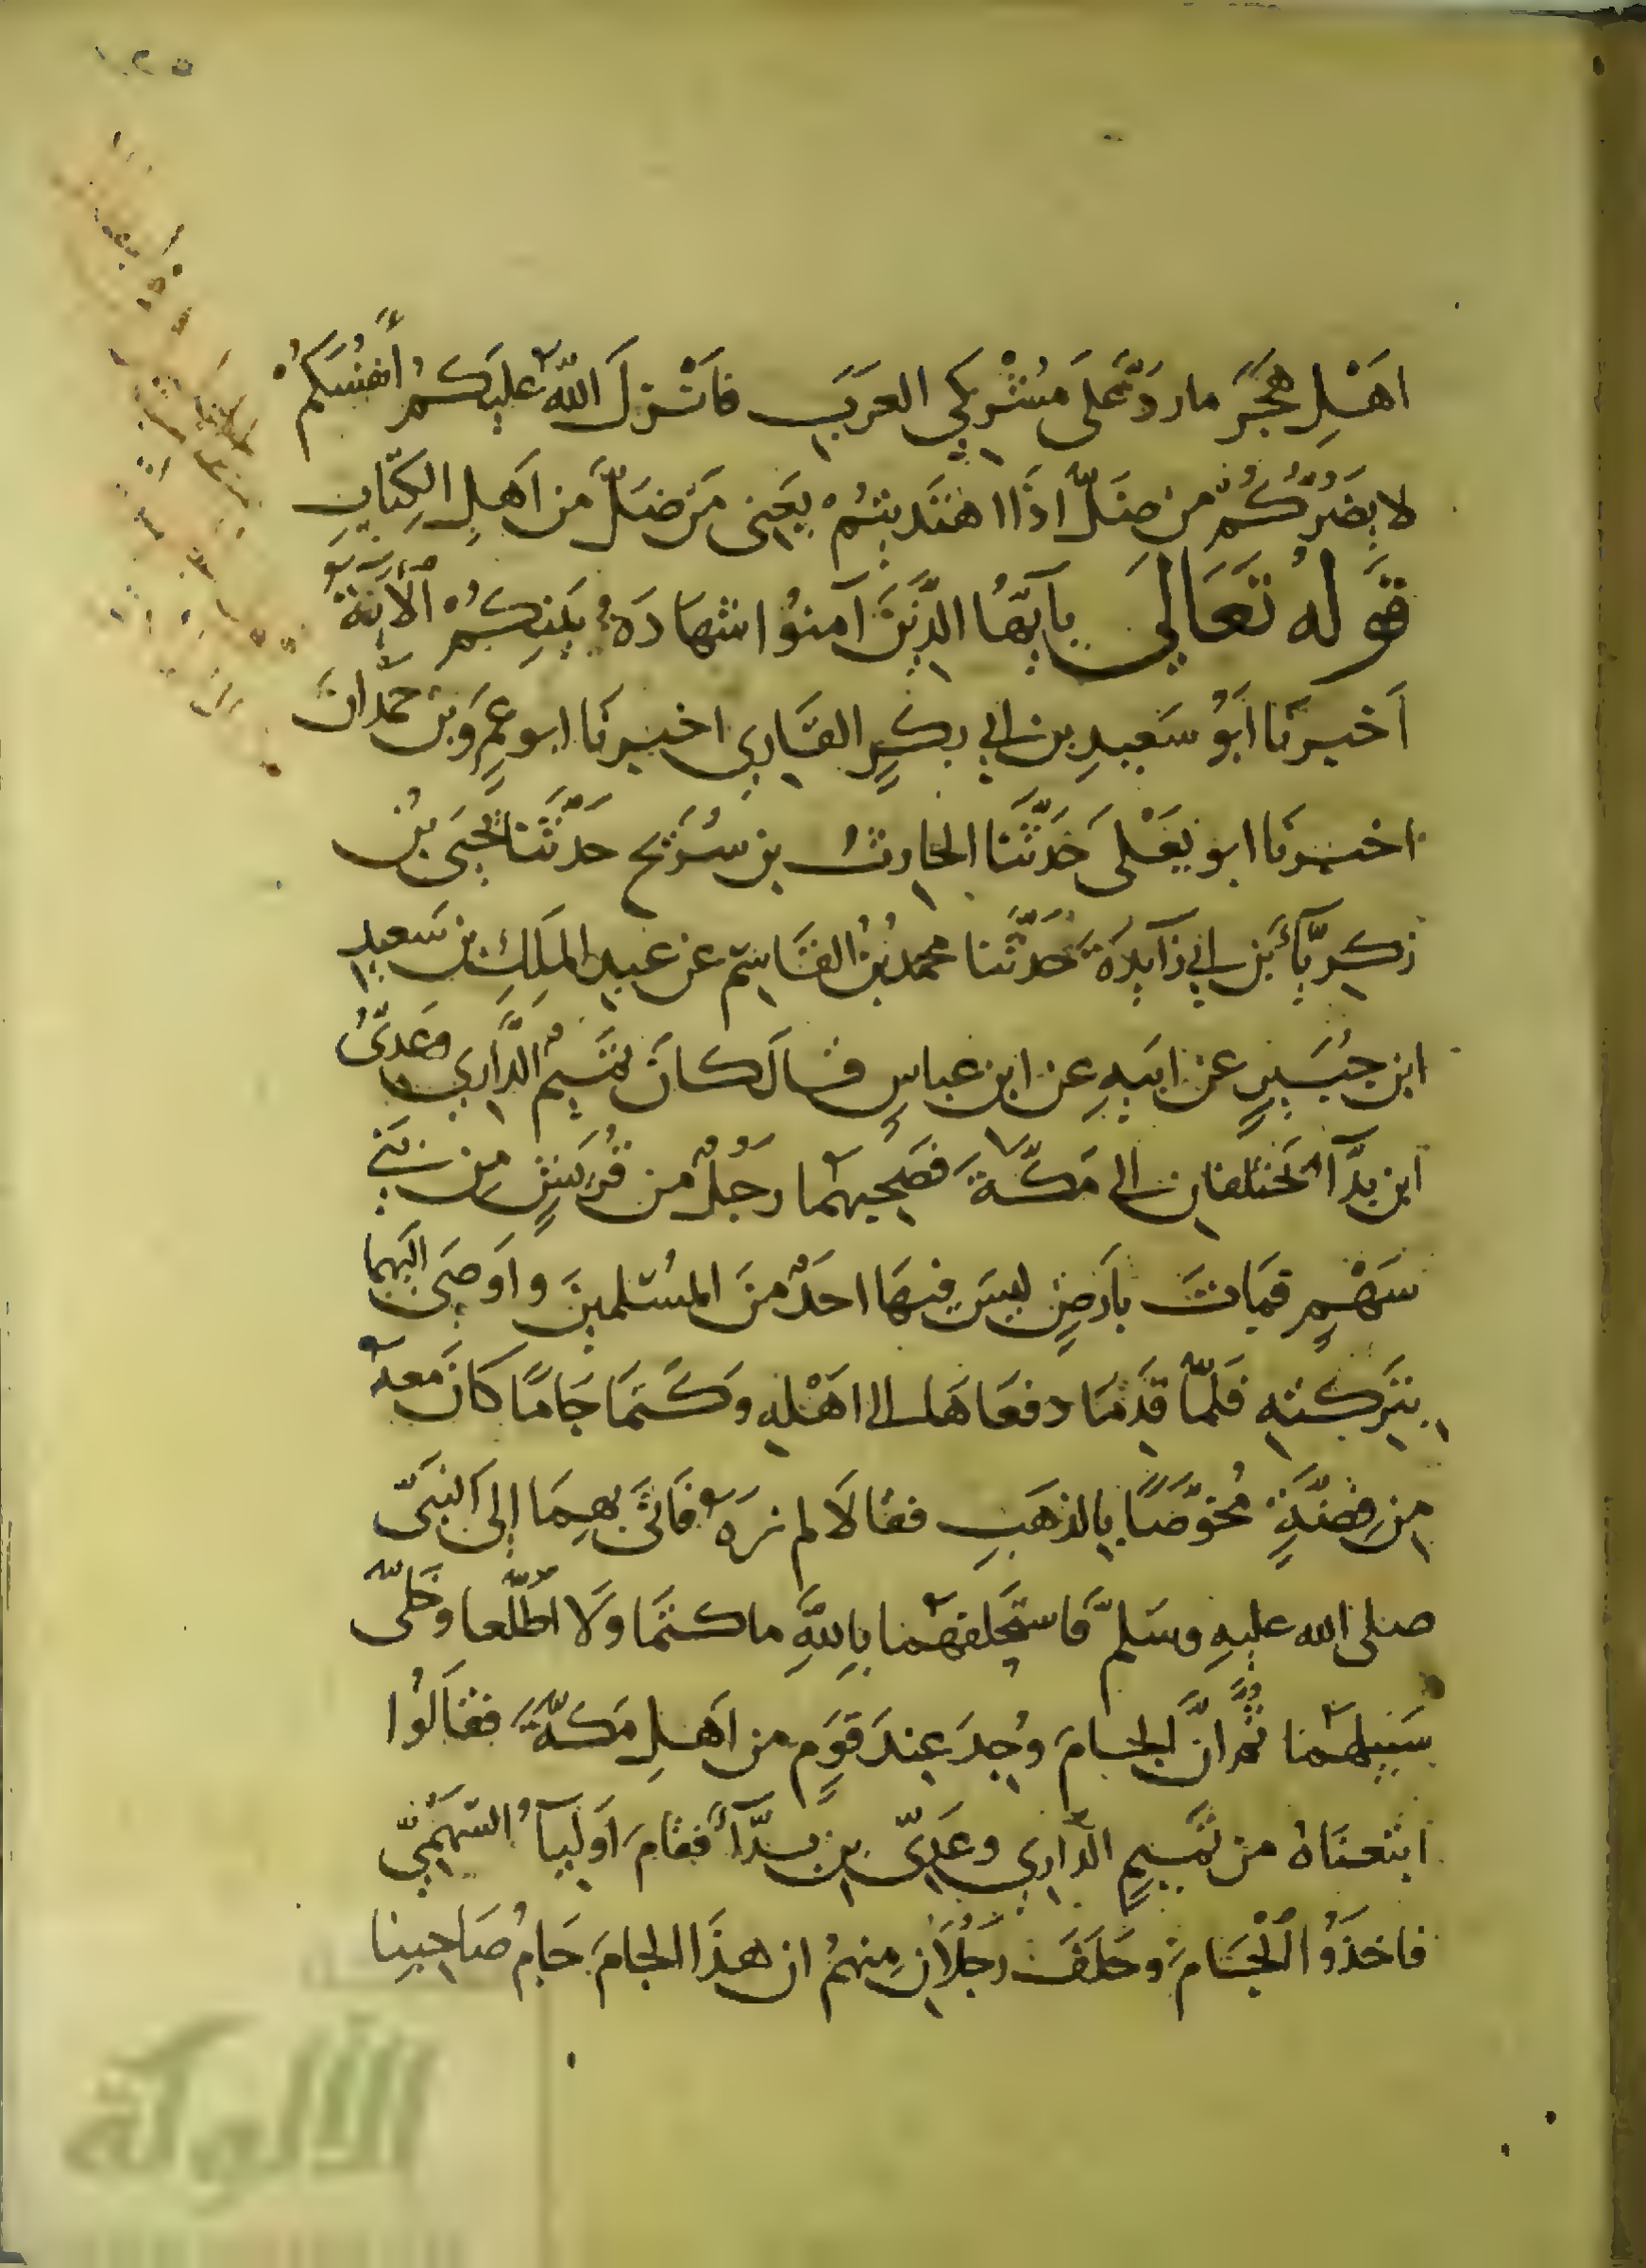 اهْلِ هَجَرَ ما ردَّ عَلَى مُشْرِكي العَرَبِ فَأنْزلَ اللهُ عليكُمْ أنفُسَكُمْ
لا يضُرُّكُمْ من ضلَّ اذَا اهْتَدَيْتُمْ يعَنى مَنْ ضلَّ من اهلِ الكِتَابِ
قولهُ تَعَالى يا أيّهَا الذّينَ آمنوُا شهادَةُ بَيْنِكُمْ الآيَة
اَخبرنَا ابَوُ سَعيدِ بن ابي بكرٍ الغَازي اخبرنَا ابو عمرِو بن حمدَانَ
اخبرنَا ابو يعْلى حَدّثَنَا الحارثُ بن سُرَيْح حَدّثَنَا يحيَى بْنُ
زكريّا بن ابي زَايدَة حَدّثَنا محمد بْنُ القَاسِم عن عبد الملِكِ بن سَعيدِ
ابن جُبَيرٍ عن ابيهِ عن ابن عباسٍ قال كانَ تميم الدَّاري وعدىُّ
ابن بدّآ يختلفان الى مَكّةَ فصَحِبهمَا رَجُلٌ من قُرَيشٍ من بَنِي
سَهْمٍ فمَاتَ بأرضٍ ليسَ فيهَا احَدٌ منَ المُسْلمينَ واَوصَى اليهما
بتركتِهِ فَلمّا قَدِمَا دفعَاهَا الى اهْلِهِ وكَتَمَا جَامًا كانَ معهُ
من فِضّةٍ مُخوّصًا بالذهَبِ فقالَا لم نرَهُ فَاتىَ بهِمَا إلى النبيّ
صلى الله عليهِ وسَلمّ فاستحْلفهُما باِللهِ ما كتمَا ولَا اطّلعا وخَلّى
سَبيلهُما ثُمّ انَّ الجامَ وُجِدَ عِندَ قوَمٍ من اهلِ مَكّةَ فقَالوُا
ابتعنَاهُ من تميمٍ الدّاري وعَدِىّ بن بدّآ فقامَ اَوليآُ السّهْمِيّ
فاخَذوُا الْجَامَ وحَلَفَ رجُلَانِ مِنهمُ ان هذَا الجامَ جَامُ صَاحِبِنا
الألوكة